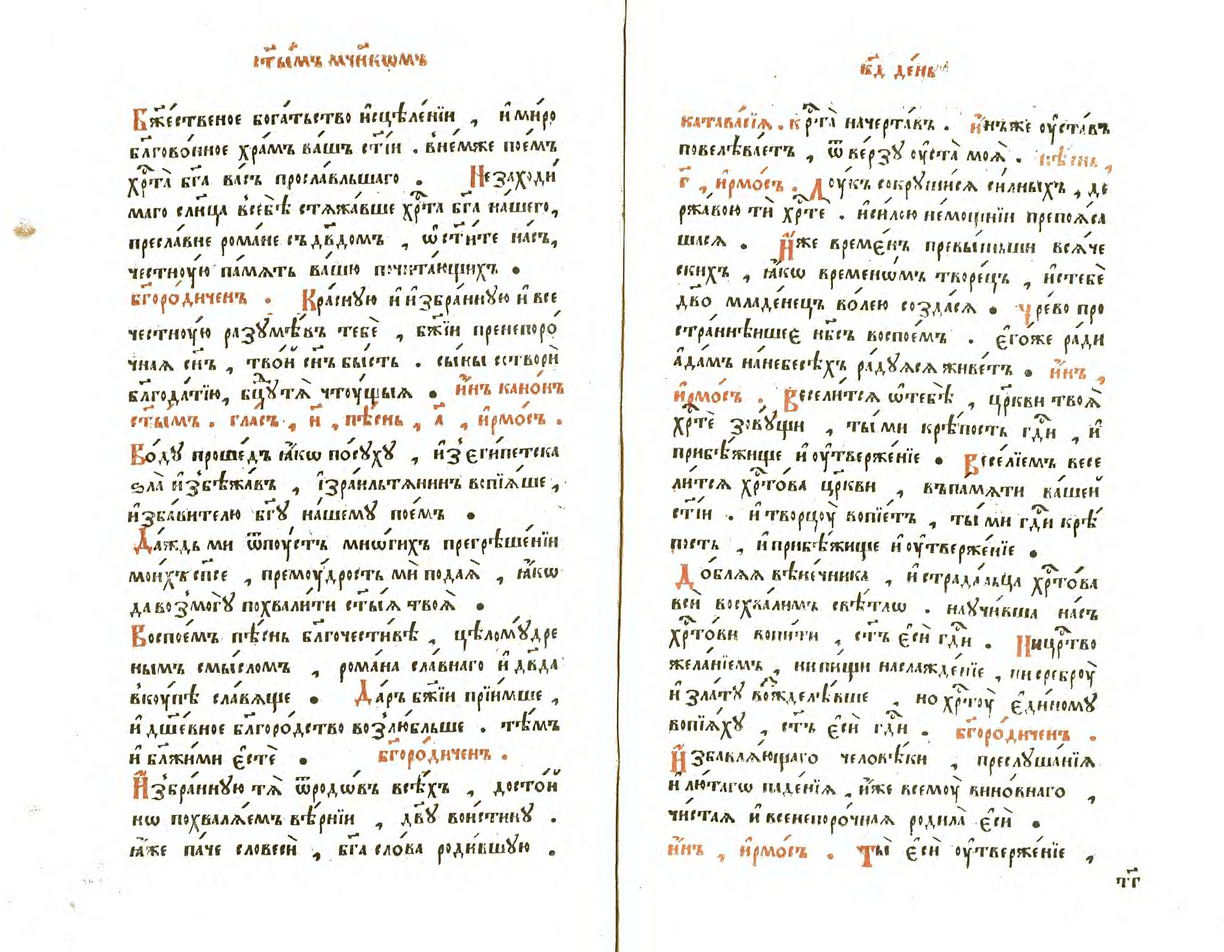 ст҃ы́мъ мч҃нкѡмъ
Бж҃е́ственое бога́тьство и҆сцѣле́нїи , и҆ ми́ро
бл҃гово́нное хра́мъ ва́шъ ст҃і́и . в̾не́мже пое́мъ
хрⷭ҇та̀ бг҃а ва́съ просла́вльшаго . Незаходи́
маго сл҃нца в̾себѣ̀ стѧжа́вше хрⷭ҇та бг҃а на́шего,
пресла́вне рома́не съ дв҃домъ , ѡ҆ст҃и́те на́съ,
честну́ю па́мѧть ва́шю почита́ющихъ .
бг҃оро́диченъ . Кра́сную и҆ и҆збра́нную и҆ все
честну́ю разумѣ́въ тебѐ , бж҃їи пренепоро́
чнаѧ сн҃ъ , тво́й сн҃ъ бы́сть . сы́ны сотвори́
бл҃года́тїю, бц҃у тѧ̀ чту́щыѧ . и҆́нъ кано́нъ
ст҃ы́мъ . гла́съ , и҃ , пѣ́снь , а҃ , і҆рмо́съ .
Во́ду проше́дъ ꙗ҆́кѡ по́суху , и҆з̾ є҆гі́петска
ѕла̀ и҆збѣжа́въ , і҆зраильтѧнинъ вопїѧ́ше ,
и҆зба́вителю бг҃у на́шему пое́мъ .
Да́ждь ми ѿпу́стъ мно́гихъ прегрѣше́нїи
мои́хъ сп҃се , прему́дрость ми пода́ѧ , ꙗ҆́кѡ
да возмогу̀ похвали́ти ст҃ы́ѧ твоѧ̀ .
Воспое́мъ пѣ́снь бл҃гочести́вѣ , цѣлому́дре
нымъ смы́сломъ , рома́на сла́внаго и҆ дв҃да
вку́пѣ сла́вѧще . Да́ръ бж҃їи прїи́мше ,
и҆ дш҃е́вное бл҃горо́дство возлю́бльше . тѣ́мъ
и҆ бл҃же́ми є҆стѐ . бг҃оро́диченъ .
И҆збра́нную тѧ̀ ѿродѡ́въ всѣ́хъ , досто́й
нѡ похвалѧ́емъ вѣ́рнїи , дв҃у вои́стину .
ꙗ҆́же па́че словесѝ , бг҃а сло́ва роди́вшую .
к҃д де́нь
катава́сїѧ . крⷭ҇та̀ начерта́въ . и҆́нъже у҆ста́въ
повелѣва́етъ , ѿве́рзу у҆ста̀ моѧ̀ . пѣ́снь ,
г҃ , і҆рмо́съ . Лу́къ сокруши́сѧ си́льныхъ , де
ржа́вою тѝ хрⷭ҇те . и҆си́лою не́мощнїи препоѧ́са
шасѧ . И҆́же време́нъ превы́шьши всѧ́че
скихъ , ꙗ҆́кѡ временѡ́мъ творе́цъ , и҆стебѐ
дв҃о младе́нецъ во́лею созда́сѧ . чре́во про
стра́ннѣишеє нб҃съ воспое́мъ . є҆го́же ра́ди
а҆да́мъ нанебесѣ́хъ ра́дуѧсѧ живе́тъ . и҆́нъ ,
і҆рмо́съ . Весели́тсѧ ѡ҆тебѣ̀ , цр҃кви твоѧ̀
хрⷭ҇тѐ зову́щи , ты́ ми крѣ́пость гдⷭ҇и , и҆
прибѣ́жище и҆ у҆твержє́нїе . Весе́лїемъ весе
ли́тсѧ хрⷭ҇то́ва цр҃кви , въпа́мѧти ва́шей
ст҃і́и . и҆ творцу̀ вопїе́тъ , ты́ ми гдⷭ҇и крѣ́
пость , и҆ прибѣ́жище и҆ у҆тверже́нїе .
До́блѧѧ вѣне́чника , и҆ страда́льца хрⷭ҇то́ва
всѝ восхва́лимъ свѣ́тлѡ . научи́вша на́съ
хрⷭ҇то́ви вопи́ти , ст҃ъ є҆сѝ гдⷭ҇и . Ницрⷭ҇тво
жела́нїемъ , нипи́щи наслажде́нїе , нисребру̀
и҆ зла́ту вожделѣ́вше , но хрⷭ҇ту̀ є҆ди́ному
вопїѧ́ху , ст҃ъ є҆сѝ гдⷭ҇и . бг҃оро́диченъ .
И҆збавлѧ́ющаго человѣ́ки , преслуша́нїѧ
и҆ лю́тагѡ паде́нїѧ , и҆́же всему̀ вино́внаго ,
чи́стаѧ и҆ всенепоро́чнаѧ родила̀ є҆сѝ .
и҆́нъ , і҆рмо́съ . Ты̀ є҆сѝ у҆тверже́нїе ,
тг҃